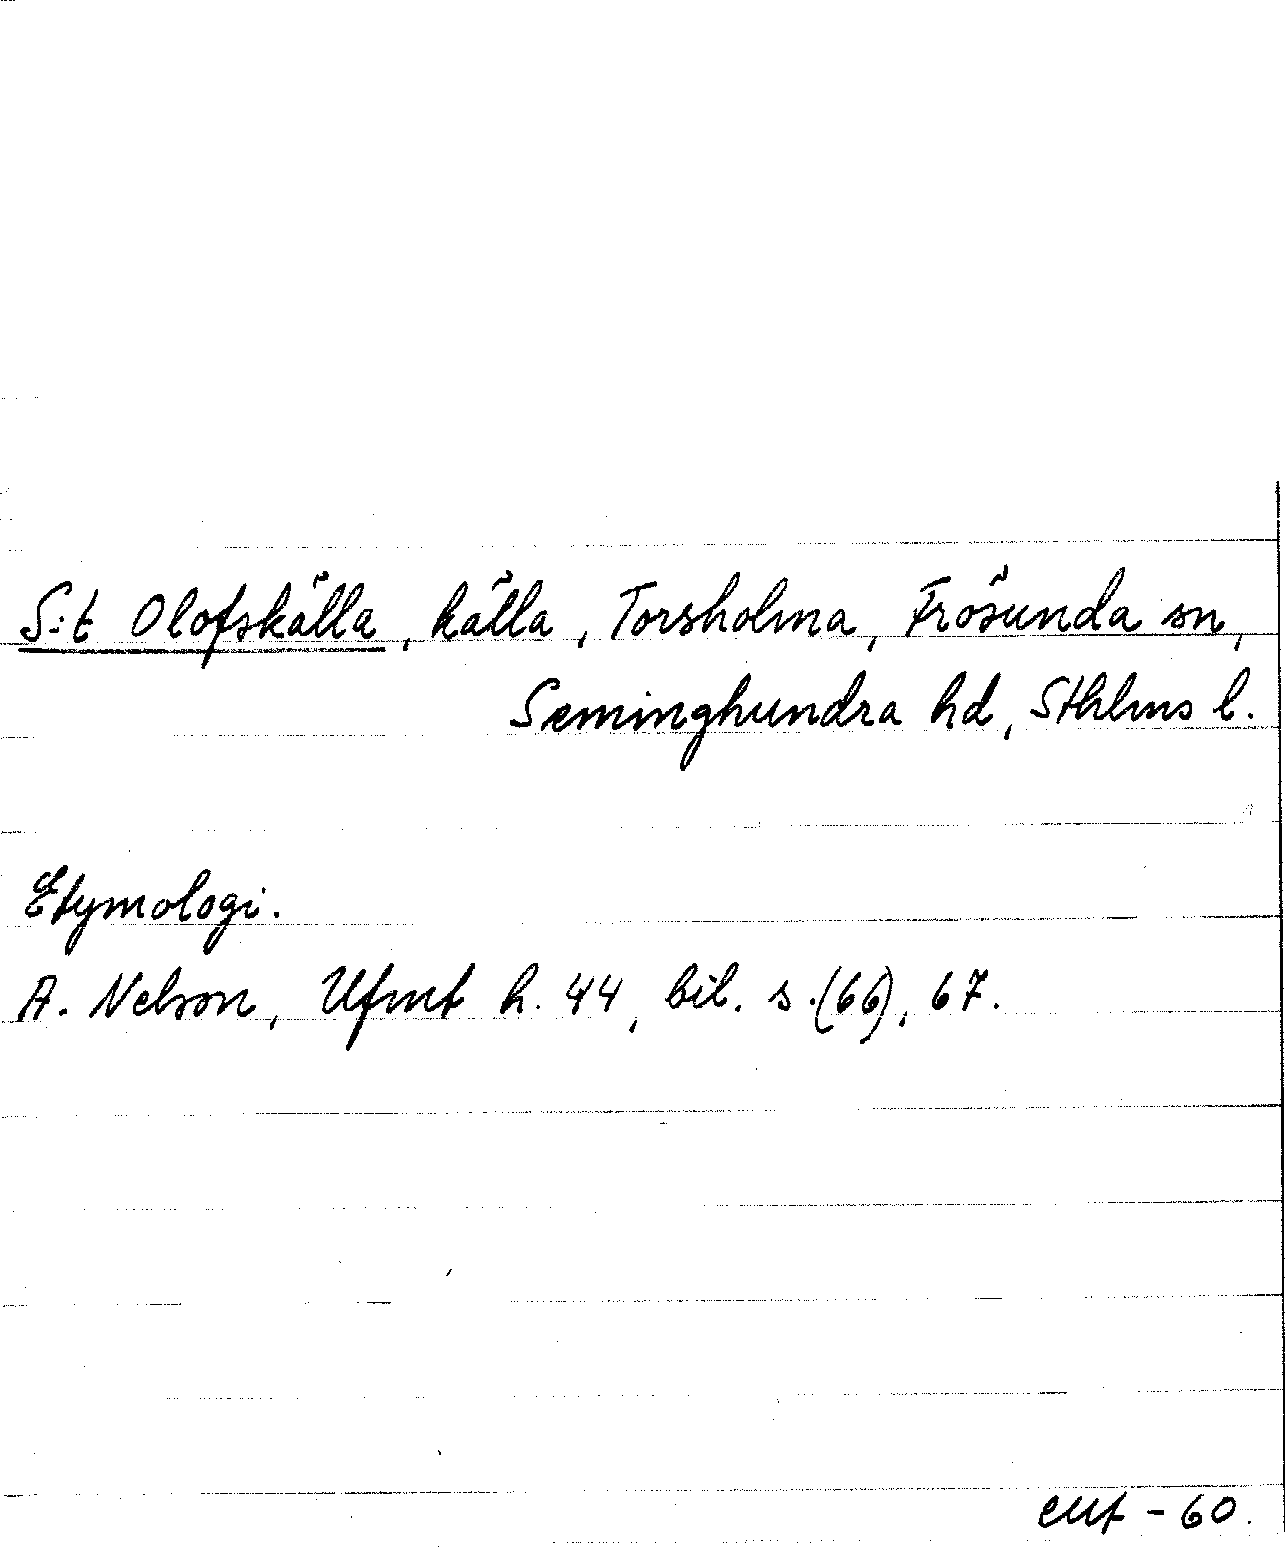 S:t Olofskälla, källa, Torsholma, Frösunda sn,
Seminghundra hd, Sthlms l.
Etymologi.
A. Nelson, Ufmt h. 44, bil. s.(66), 67.
- 60.